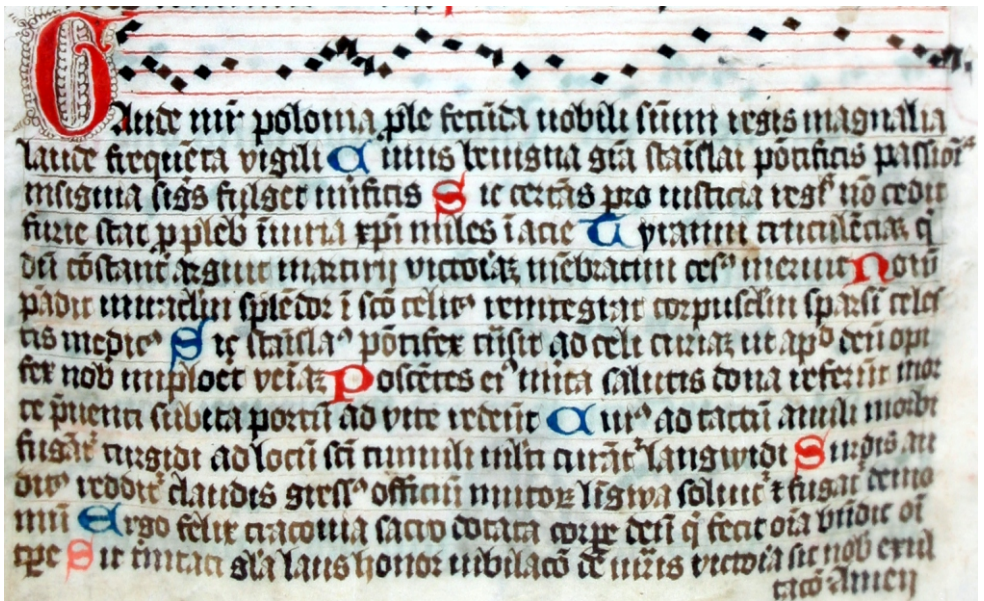 Gaude mr̄ polonia ꝓle fecūda nobili sūmi regis magnalia
laude frequēta vigili Cuius benigna gr̄a stāislai pōtificis passiōꝫ
insignia sigͥs fulget mīrificis Sic certās pro iusticia regꝭ nō cedit
furie stat ꝓ ppleb iniuria xp̄i miles ī acie Tyranni truculēciaꝫ q̄
dū cōstant̄ arguit martirij victoriaꝫ mēbratim cesꝰ meruit Nouū
ꝓadit miraclm splēdor ī sc̄o celitꝰ reintegrat corpusclm sparsū celes
tis medicꝰ Sic stāislaꝰ pōtifex trāsit ad celi curiaꝫ ut apᵈ deū opi
fex nob imploet veīaꝫ Poscētes eiꝰ mīta salutis dona referūt mor
te p̄uenti subita portū ad vite redeūt Cuiꝰ ad tactū anuli morbi
fugāt̄ turgidi ad locū sc̄i tumuli ml̄ti curāt̄ langwidi Surdis au
ditꝰ reddit̄ claudis gressꝰ officiū mutoꝝ līgwa soluit̄ ⁊ fugat̄ demo
niū Ergo felix cracouia sacro dotata corꝑe deū q̄ fecit oīa bn̄dic oī
tꝑe Sit trinitati gl̄a laus honor iubilacō de mr̄is victoria sit nob exul
tacō Amen